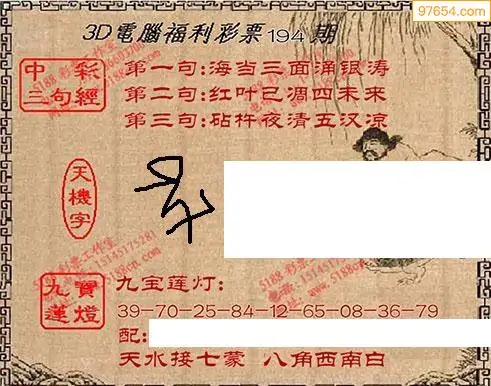 97654.com
3D電腦福利彩票194期
中彩
三句經
第一句:海当三面涌银涛
第二句:红叶已凋四未来
第三句:砧杵夜清五汉凉
天機字
5188彩票工作室
九寶
蓮燈
九宝莲灯:
39-70-25-84-12-65-08-36-79
配:
天水接七蒙 八角西南白